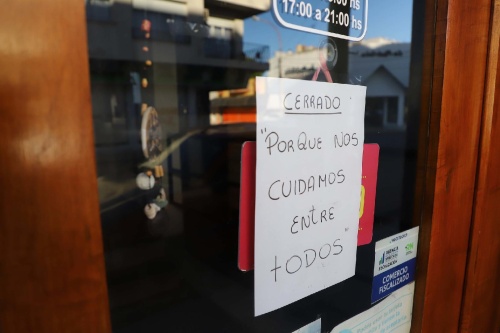 hs
17:00 a 21:00 hs
CERRADO
"PORQUE NOS
CUIDAMOS
ENTRE
TODOS"
COMERCIO
FISCALIZADO